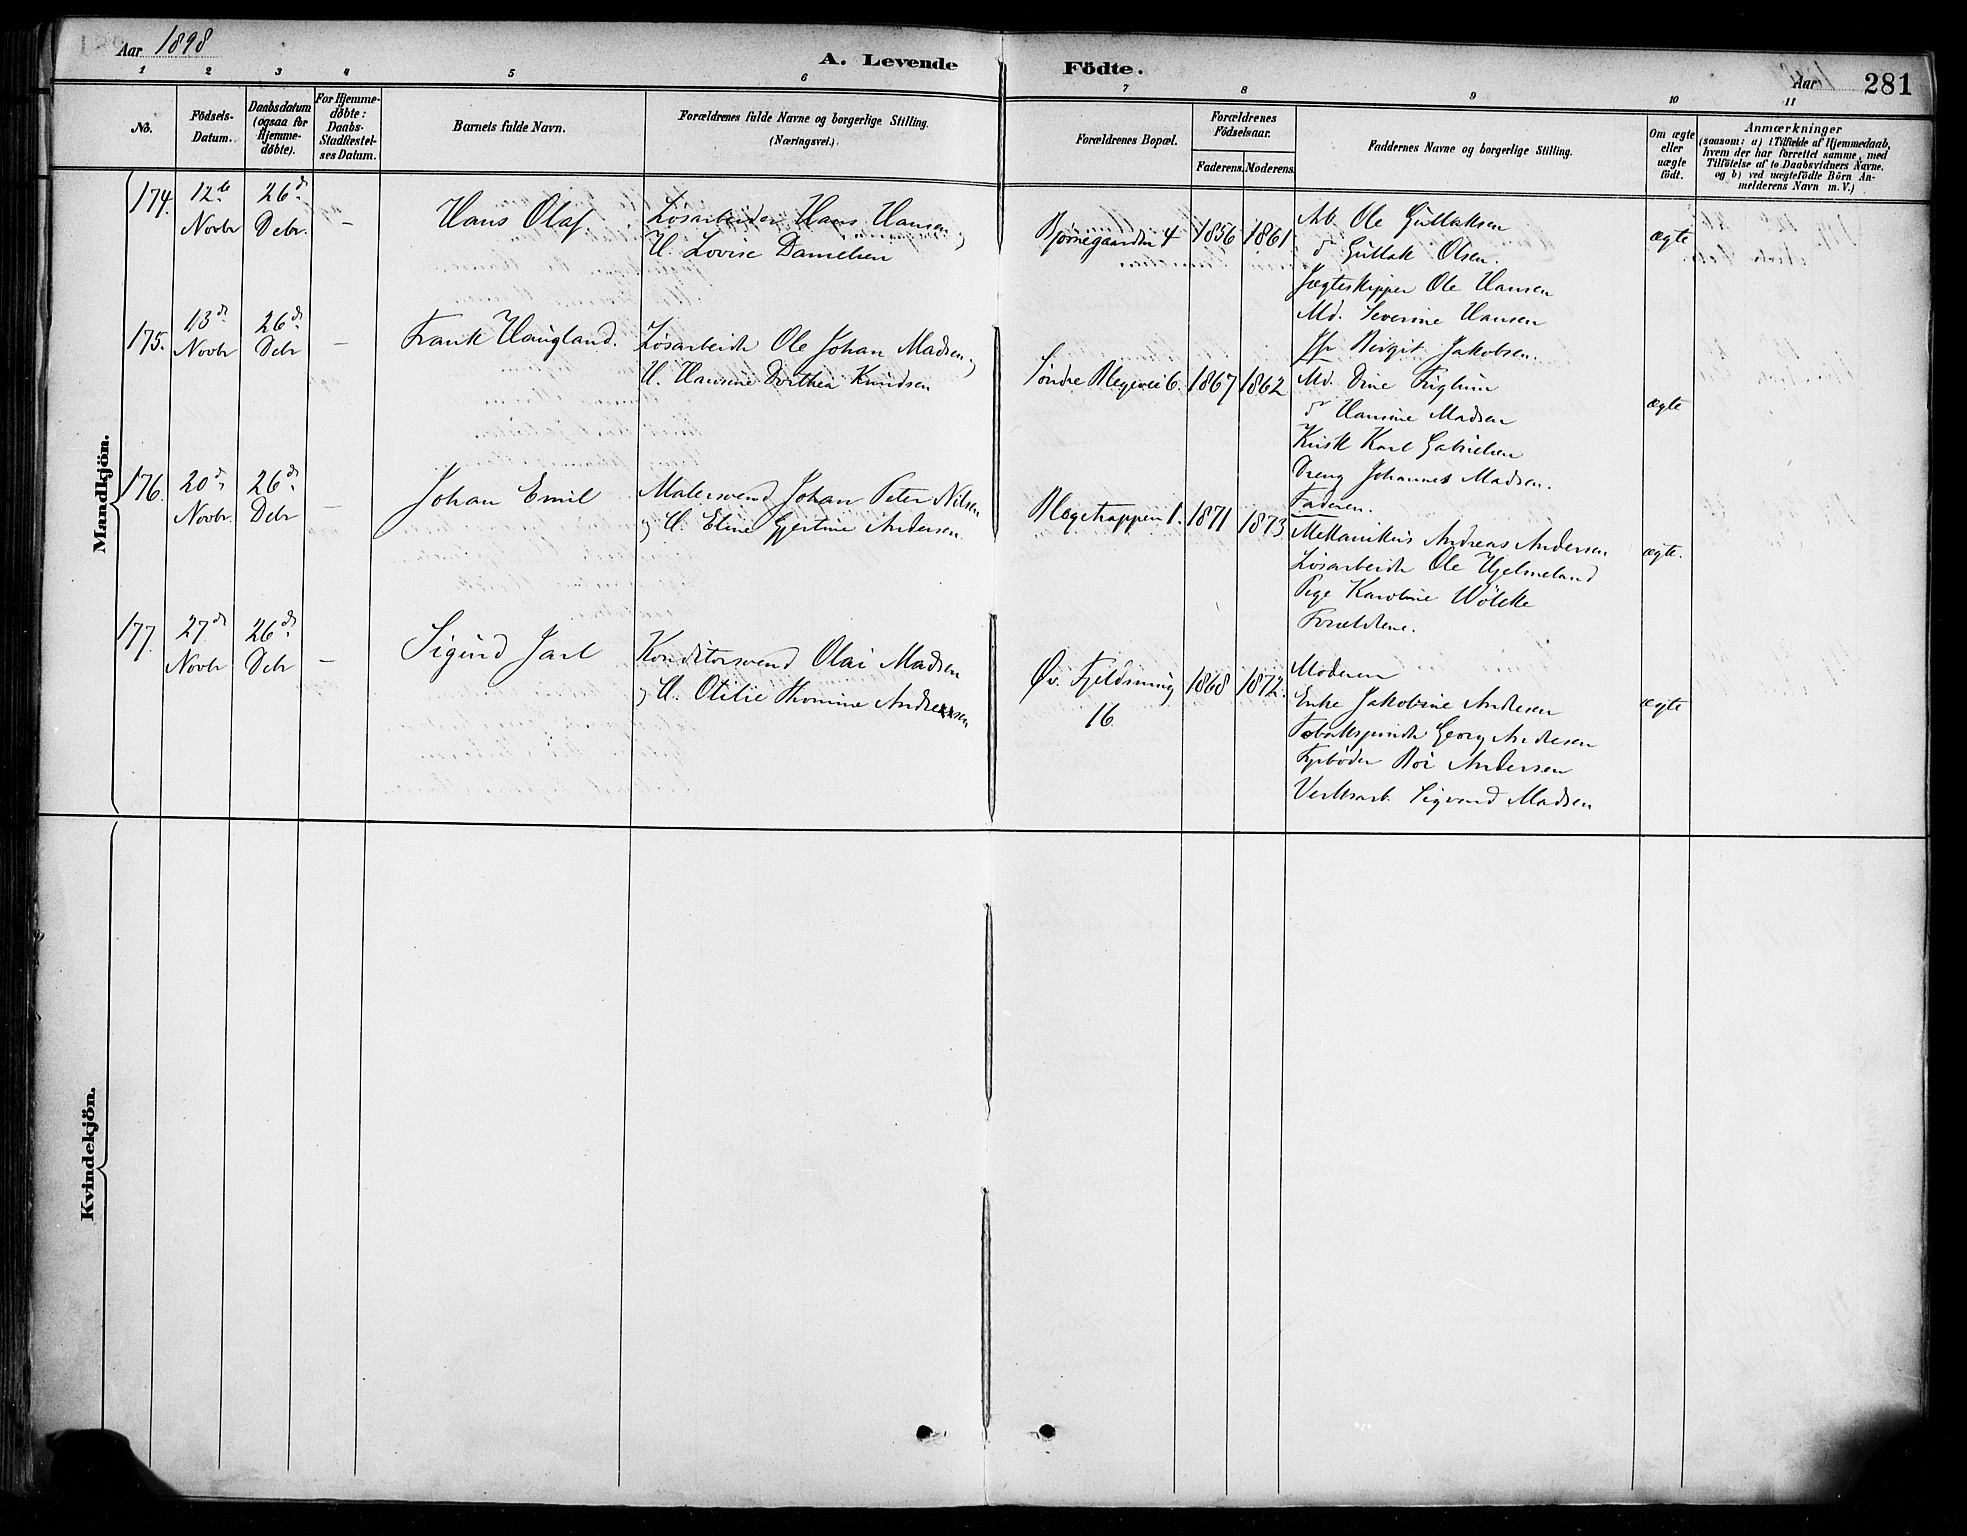 Aar 1898
A. Levende Födte.
Aar 281
1 2 3 4 5 6 7 8 9 10 11
No.
Födsels-
Datum.
Daabsdatum
(ogsaa for
Hjemme-
döbte).
For Hjemme-
döbte:
Daabs-
Stadfæstel-
ses Datum.
Barnets fulde Navn.
Forældrenes fulde Navne og borgerlige Stilling.
(Næringsvei.)
Forældrenes Bopæl.
Forældrenes
Födselsaar.
Faderens. Moderens.
Faddernes Navne og borgerlige Stilling.
Om ægte
eller
uægte
födt.
Anmærkninger
(saasom: a) i Tilfælde af Hjemmedaab,
hvem der har forrettet samme, med
Tilföielse af to Daabsvidners Navne.
og b) ved uægtefödte Börn An-
melderens Navn m. V.)
Mandkjön.
174. 12te Novbr 26d Debr. –
Hans Olaf
Løsarbeider Hans Hansen,
H. Lovise Danielsen
Bjørnegaarden 4 1856 1861
Arb. Ole Gullaksen
dr Gullak Olsen.
Jægteskipper Ole Hansen
Md. Severine Hansen
Jfr Birgit Jakobsen.
ægte
175. 13d Novbr 26d Debr –
Frank Haugland.
Løsarbeidr Ole Johan Madsen,
H. Hansine Dorthea Knudsen
Søndre Blegevei 6. 1867 1862
Md. Dine
dr Hansine Madsen
Karl Gabrielsen
Dreng Johannes Madsen.
Faderen.
ægte
176. 20d Novbr. 26d Debr –
Johan Emil
Malersvend Johan Peter Nilsen
, H. Eline Gjertine Andersen.
Blegetrappen 1. 1871 1873
Mekanikus Andreas Andersen
Løsarbeidr Ole Hjelmeland
Pige Karoline Wölcke
Forældrene.
ægte.
177. 27d Novbr 26d Debr –
Sigurd Jarl
Konditorsvend Olai Madsen
, H. Otilie Thomine Andresen
Øv. Fjeldsmug 16. 1868 1872.
Moderen
Enke Jakobine Andresen
Tobakspindr Georg Andresen
Fyrbøder Andersen
Verksarb. Sigvard Madsen
ægte
Kvindekjön.